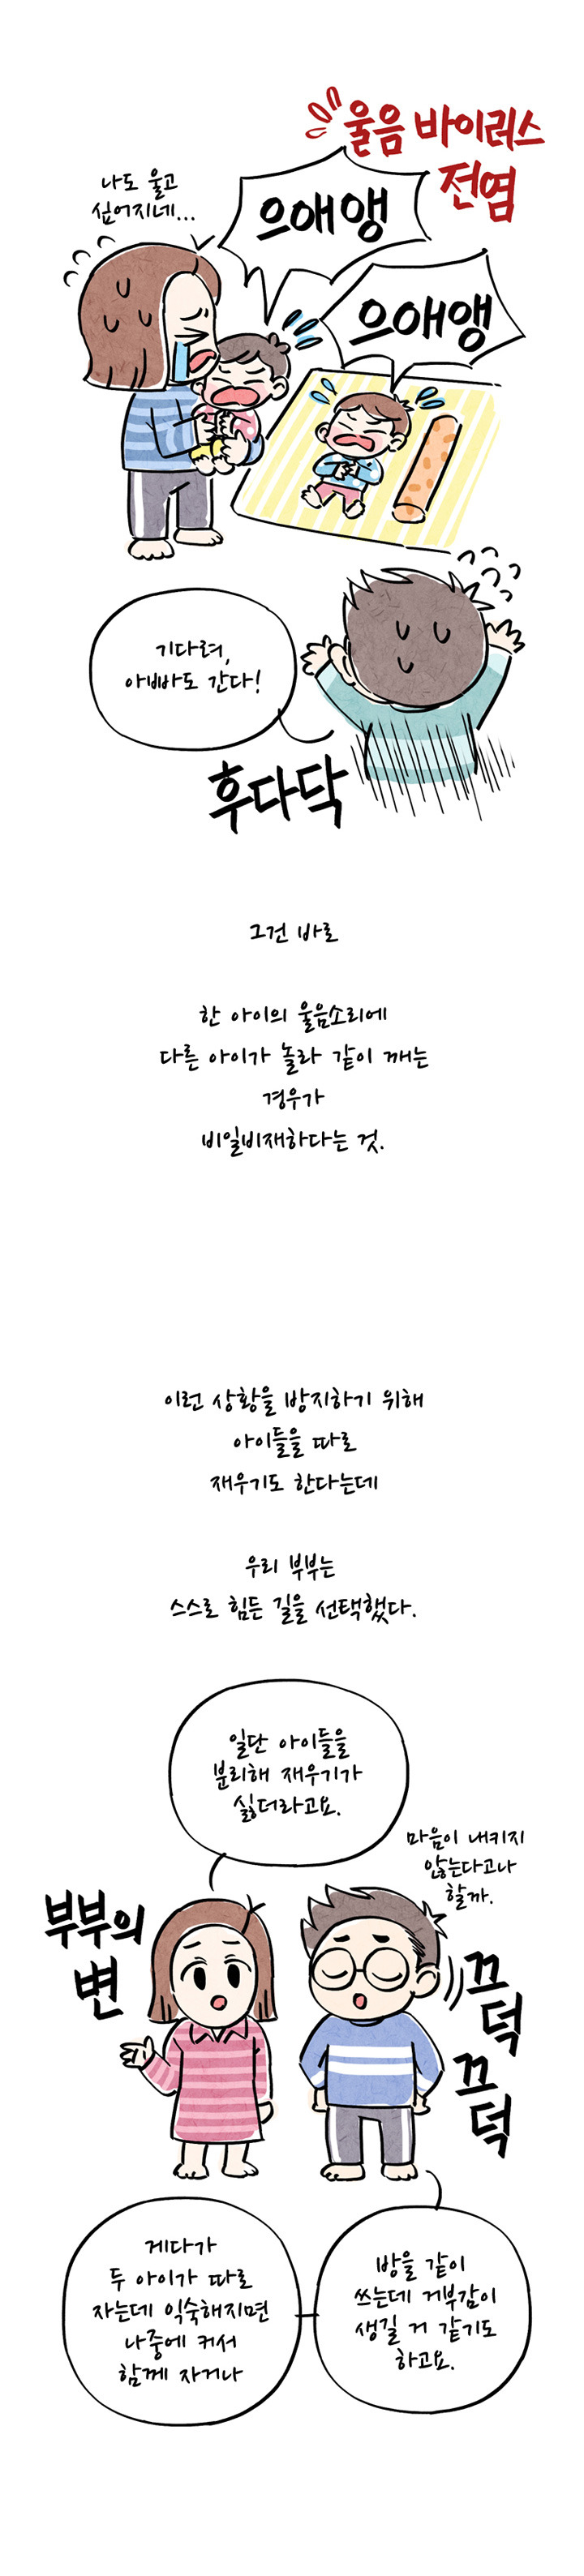 울음 바이러스
전염
나도 울고
싶어지네...
으애앵
으애앵
기다려,
아빠도 간다!
후다닥
그건 바로
한 아이의 울음소리에
다른 아이가 놀라 같이 깨는
경우가
비일비재하다는 것.
이런 상황을 방지하기 위해
아이들을 따로
재우기도 한다는데
우리 부부는
스스로 힘든 길을 선택했다.
일단 아이들을
분리해 재우기가
싫더라고요.
마음이 내키지
않는다고나
할까.
부부의
변
끄덕
끄덕
게다가
두 아이가 따로
자는데 익숙해지면
나중에 커서
함께 자거나
방을 같이
쓰는데 거부감이
생길 거 같기도
하고요.